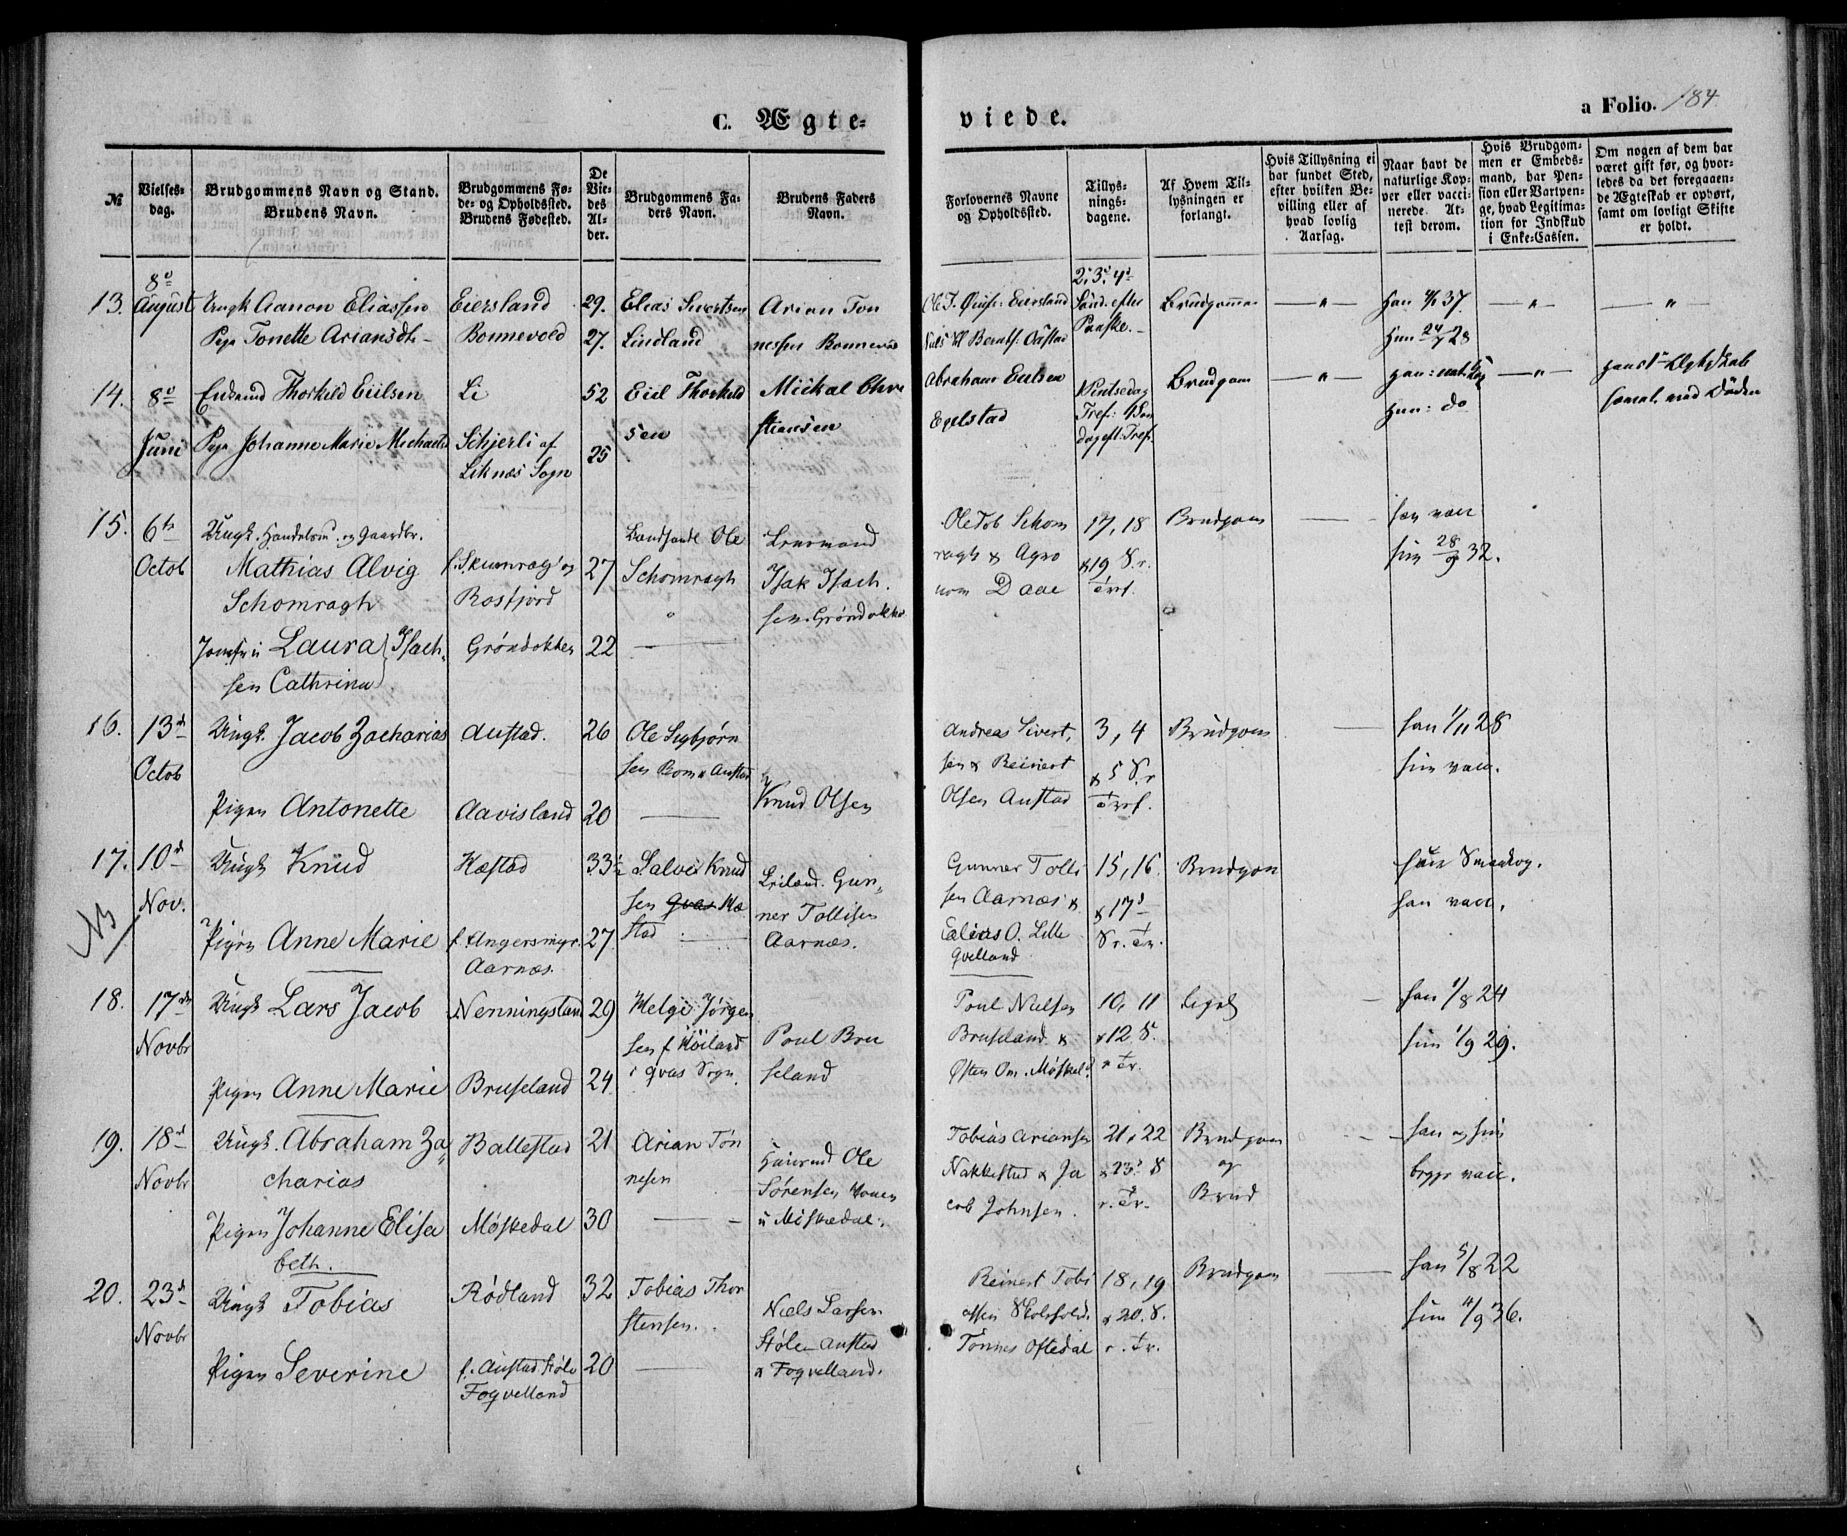 C. Ægte-
viede.
a Folio. 184
№
Vielses-
dag.
Brudgommens Navn og Stand.
Brudens Navn.
Brudgommens Fø-
de- og Opholdssted.
Brudens Fødested.
De
Vie-
des
Al-
der.
Brudgommens Fa-
ders Navn.
Brudens Faders
Navn.
Forlovernes Navne
og Opholdssted.
Tillys-
nings-
dagene.
Af Hvem Til-
lysningen er
forlangt.
Hvis Tillysning ei
har fundet Sted,
efter hvilken Be-
villing eller af
hvad lovlig
Aarsag.
Naar havt de
naturlige Kop-
per eller vacci-
nerede. At-
test derom.
Hvis Brudgom-
men er Embeds-
mand, har Pen-
sion eller Vartpen-
ge, hvad Legitima-
tion for Indskud
i Enke-Cassen.
Om nogen af dem har
været gift før, og hvor-
ledes da det foregaaen-
de Ægteskab er ophørt,
samt om lovligt Skifte
er holdt.
13.
8de
August
Ungk Aanon Eliassen
Pige Tonette Ariansdt
Eiersland
Bonnevold
29.
27.
Elias Sivertsen
Lindland
Arian Ton
nessen Bonnevol
Eiersland
Niels
2, 3, 4de
Sønd. efter
Paaske.
Brudgomme
Han 37.
Hun 24/ 28
14.
8de
Juni
Enkemd Thorkeld Eiilsen
Pige Johanne Marie Michaels
Li
Schjerli af
Liknes Sogn
52
25
Eiil Thorkeld
sen
Mickal Chri
stiansen
Abraham Eiilsen
Egelstad
Pintsedag
Tref: 1 Søn
dag eft: Tref.
Brudgom
Han: nat. Kop
Hun: do
Hans 1ste Ægteskab
ved Døden
15.
6te
Octob
Ungk. Handelsm. og Gaardbr.
Mathias Alvig
Schomragh
Jomfru Laura Isach-
sen Cathrina
f. Skumrag og
Rosfjord
Grøndokken
27
22
Landhandl Ole
Schomragh
Lensmand
Isak Isach.
sen Grøndokke
Ole Tob Schom
ragh & Agro
nom Daae
17, 18
& 19 S. r.
Tref.
Brudgom
han vacc
hun 28/9 32.
16.
13de
Octob
Ungk. Jacob Zacharias
Pigen Antonette
Austad.
Aavisland
26
20
Ole Sigbjørn
sen Rom Austad
Knud Olsen
Andreas Sivert,
sen & Reinert
Olsen Austad
3, 4
& 5 S. r
Tref.
Brudgom
han 1/11 28
hun vacc.
17.
10de
Nov.
NB
Ungk Knud
Pigen Anne Marie
Hæstad
f. Angersmyr.
Aarnæs.
33½
27.
Salve Knud
sen Hæ
stad
Leiland. Gun-
ner Tollisen
Aarnæs.
Gunner Tolli
sen Aarnæs &
Elias O. Lille
Qvelland
15, 16.
& 17de
S r. Tr.
Brudgom
hun
han vacc.
18.
17de
Novbr
Ungk Lars Jacob
Pigen Anne Marie
Nenningsland
Bruseland
29
24.
Helge Jørgen
sen f Høiland
i Qvas Sogn.
Poul Bru
seland
Poul Nielsen
Bruseland &
Østen Om. Møskeld.
10, 11
& 12 S.
r Tr.
han 1/8 24
hun 1/9 29.
19.
18de
Novbr
Ungk. Abraham Za
charias
Pigen Johanne Elisa
beth.
Ballestad
Møskedal
21
30
Arian Tøn
nesen
Huusmd Ole
Sørensen
u Møskedal.
Tobias Ariansen
Nakkestad & Ja
cob Johnsen.
21, 22
& 23. S
r. Tr.
Brudgom
og
Brud
han og hun
begge vacc.
20.
23de
Novbr
Ungk Tobias
Pigen Severine
Rødland
f. Austad Støle
Fogvelland
32
20
Tobias Thor
stensen.
Niels Larsen
Støle - Austad
Foqvelland.
Reinert Tobi
assen
Tønnes Oftedal
18, 19
& 20. S.
r. Tr.
Brudgom
han 5/8 22
hun 11/9 36.